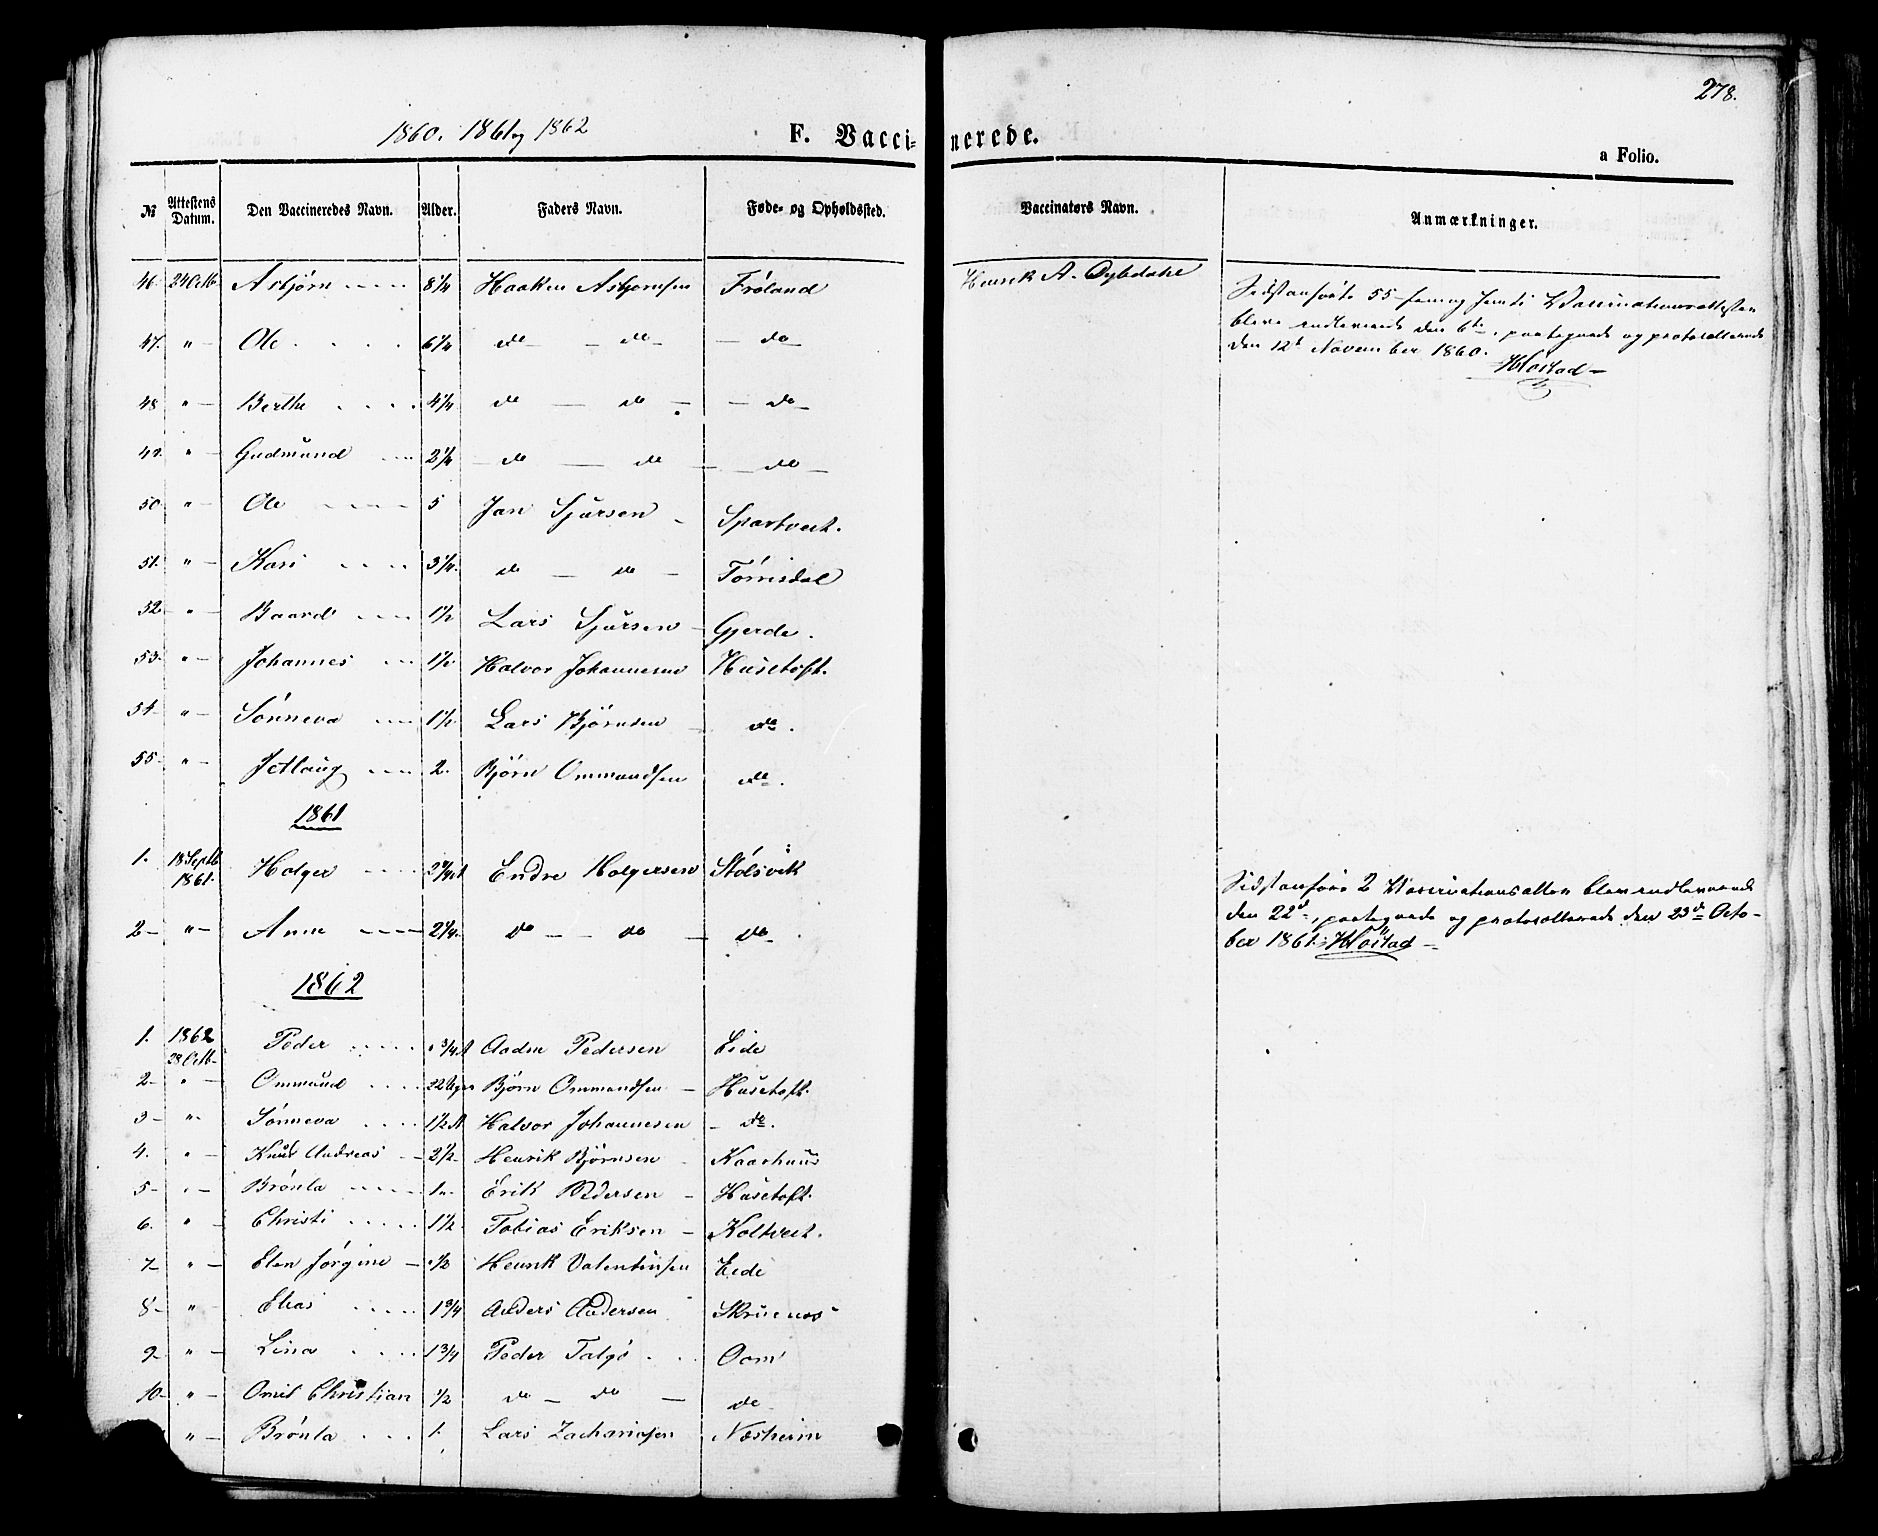 278.
1860. 1861 og 1862
F. Vaccinerede.
a Folio.
№ Attestens Datum. Den Vaccineredes Navn. Alder. Faders Navn. Føde- og Opholdssted. Vaccinators Navn. Anmærkninger.
46. 24 Octb. Asbjørn 8 1/4 Haaken Asbjornsen Frøland Henrik A. Dybdahl
Sidstanførte 55 fem og femti Vaccinationsattester
bleve indleverede den 6te, paategnede og protocollerede
den 12te November 1860.
47. " Ole 6 1/4 do do do
48 " Berthe 4 1/4 do do do
49. " Gudmund 2 1/4 do do do
50. " Ole 5 Jan Sjursen Spartveit.
51. " Kari 3 1/4. do do Tørrisdal
52 " Baard 1 1/2 Lars Sjursen Gjerde.
53. " Johannes 1 1/2 Halvor Johannesen Husetoft.
54 " Sønneva 1 1/2 Lars Bjørnsen do.
55 " 2. Bjørn Ommundsen do.
1861
1. 18 Septb 1861. Holger Endre Holgersen Stølsvik
Sidstanførte 2 Vaccinationsatter bleve indleverede
den 22d, paategnede og protocollerede den 23d Octo-
ber 1861.
2 " Anne 2 1/4. do do do
1862
1. 1862 28 Octb Peder 3/4 Pedersen Eide
2 " Ommund 22 Uger Bjørn Ommundsen Husetoft.
3 " Sønneva 1 1/2 Halvor Johannesen do.
4. " Knud Andreas 2 1/2 Henrik Bjørnsen Kaarhuus
5 " Brønla 1 Erik Pedersen Husetoft.
6. " Christi 1 1/2. Tobias Eriksen Koltveit.
7 " Elen Jørgine 1/2 Henrik Valentinsen Eide
8 " Elias 1 3/4 Anders Andersen Skruenes
9 " Lina 1 3/4 Peder Talgø
10 " Christian 1/2 do do do
" Brønla 1. Lars Zachariasen Næsheim